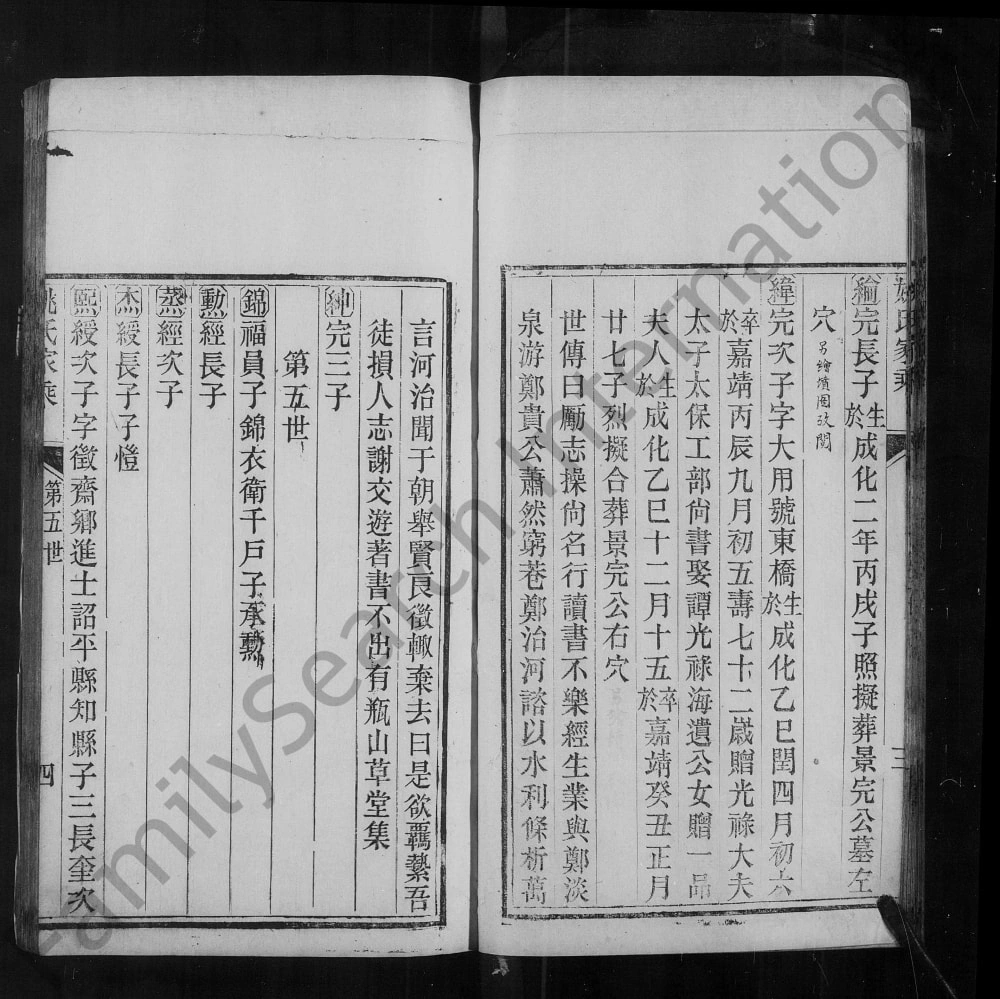 姚氏家乘
三
繪完長子生於成化二年丙戌子照擬葬景完公墓左
穴
緯完次子字大用號東橋生於成化乙巳閏四月初六
卒於嘉靖丙辰九月初五壽七十二歲贈光祿大夫
太子太保工部尚書娶譚光祿海遺公女贈一品
夫人生於成化乙巳十二月十五卒於嘉靖癸丑正月
廿七子烈擬合葬景完公右穴
世傳曰勵志操尚名行讀書不樂經生業與鄭淡
泉游鄭貴公蕭然窮巷鄭治河諮以水利條析萬
言河治聞于朝舉賢良徵輙棄去曰是欲覊縶吾
徒損人志謝交遊著書不出有瓶山草堂集
紳完三子
第五世
錦福員子錦衣衛千戶子承勲
勲經長子
蒸經次子
杰綬長子子愷
熙綬次子字徵齋鄉進士詔平縣知縣子三長奎次
姚氏家乘
第五世
四
FamilySearch International